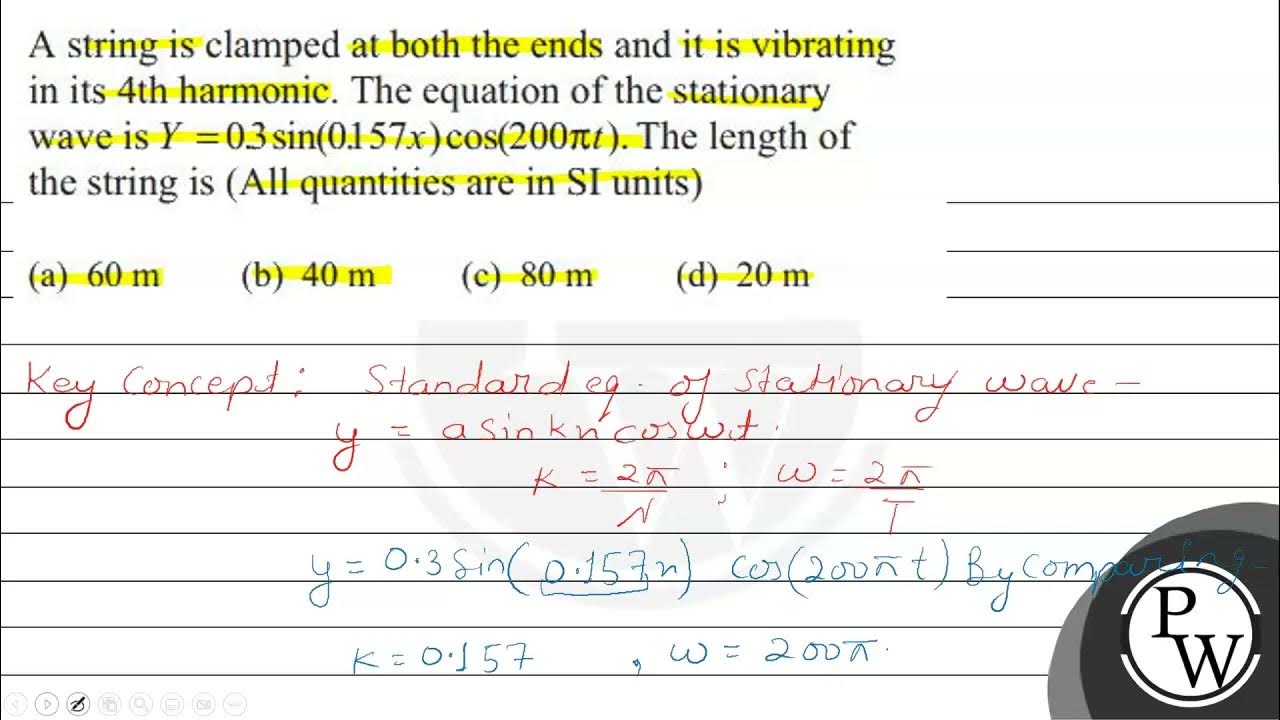 A string is clamped at both the ends and it is vibrating
in its 4th harmonic. The equation of the stationary
wave is Y = 0.3 sin(0.157x) cos(200πt). The length of
the string is (All quantities are in SI units)
(a) 60 m (b) 40 m (c) 80 m (d) 20 m
Key Concept: Standard eq. of stationary wave –
y = a sin kx cos ωt.
K = 2π/λ ; ω = 2π/T
y = 0.3 sin(0.157x) cos(200πt) By comparing –
K = 0.157 , ω = 200π.
P
W